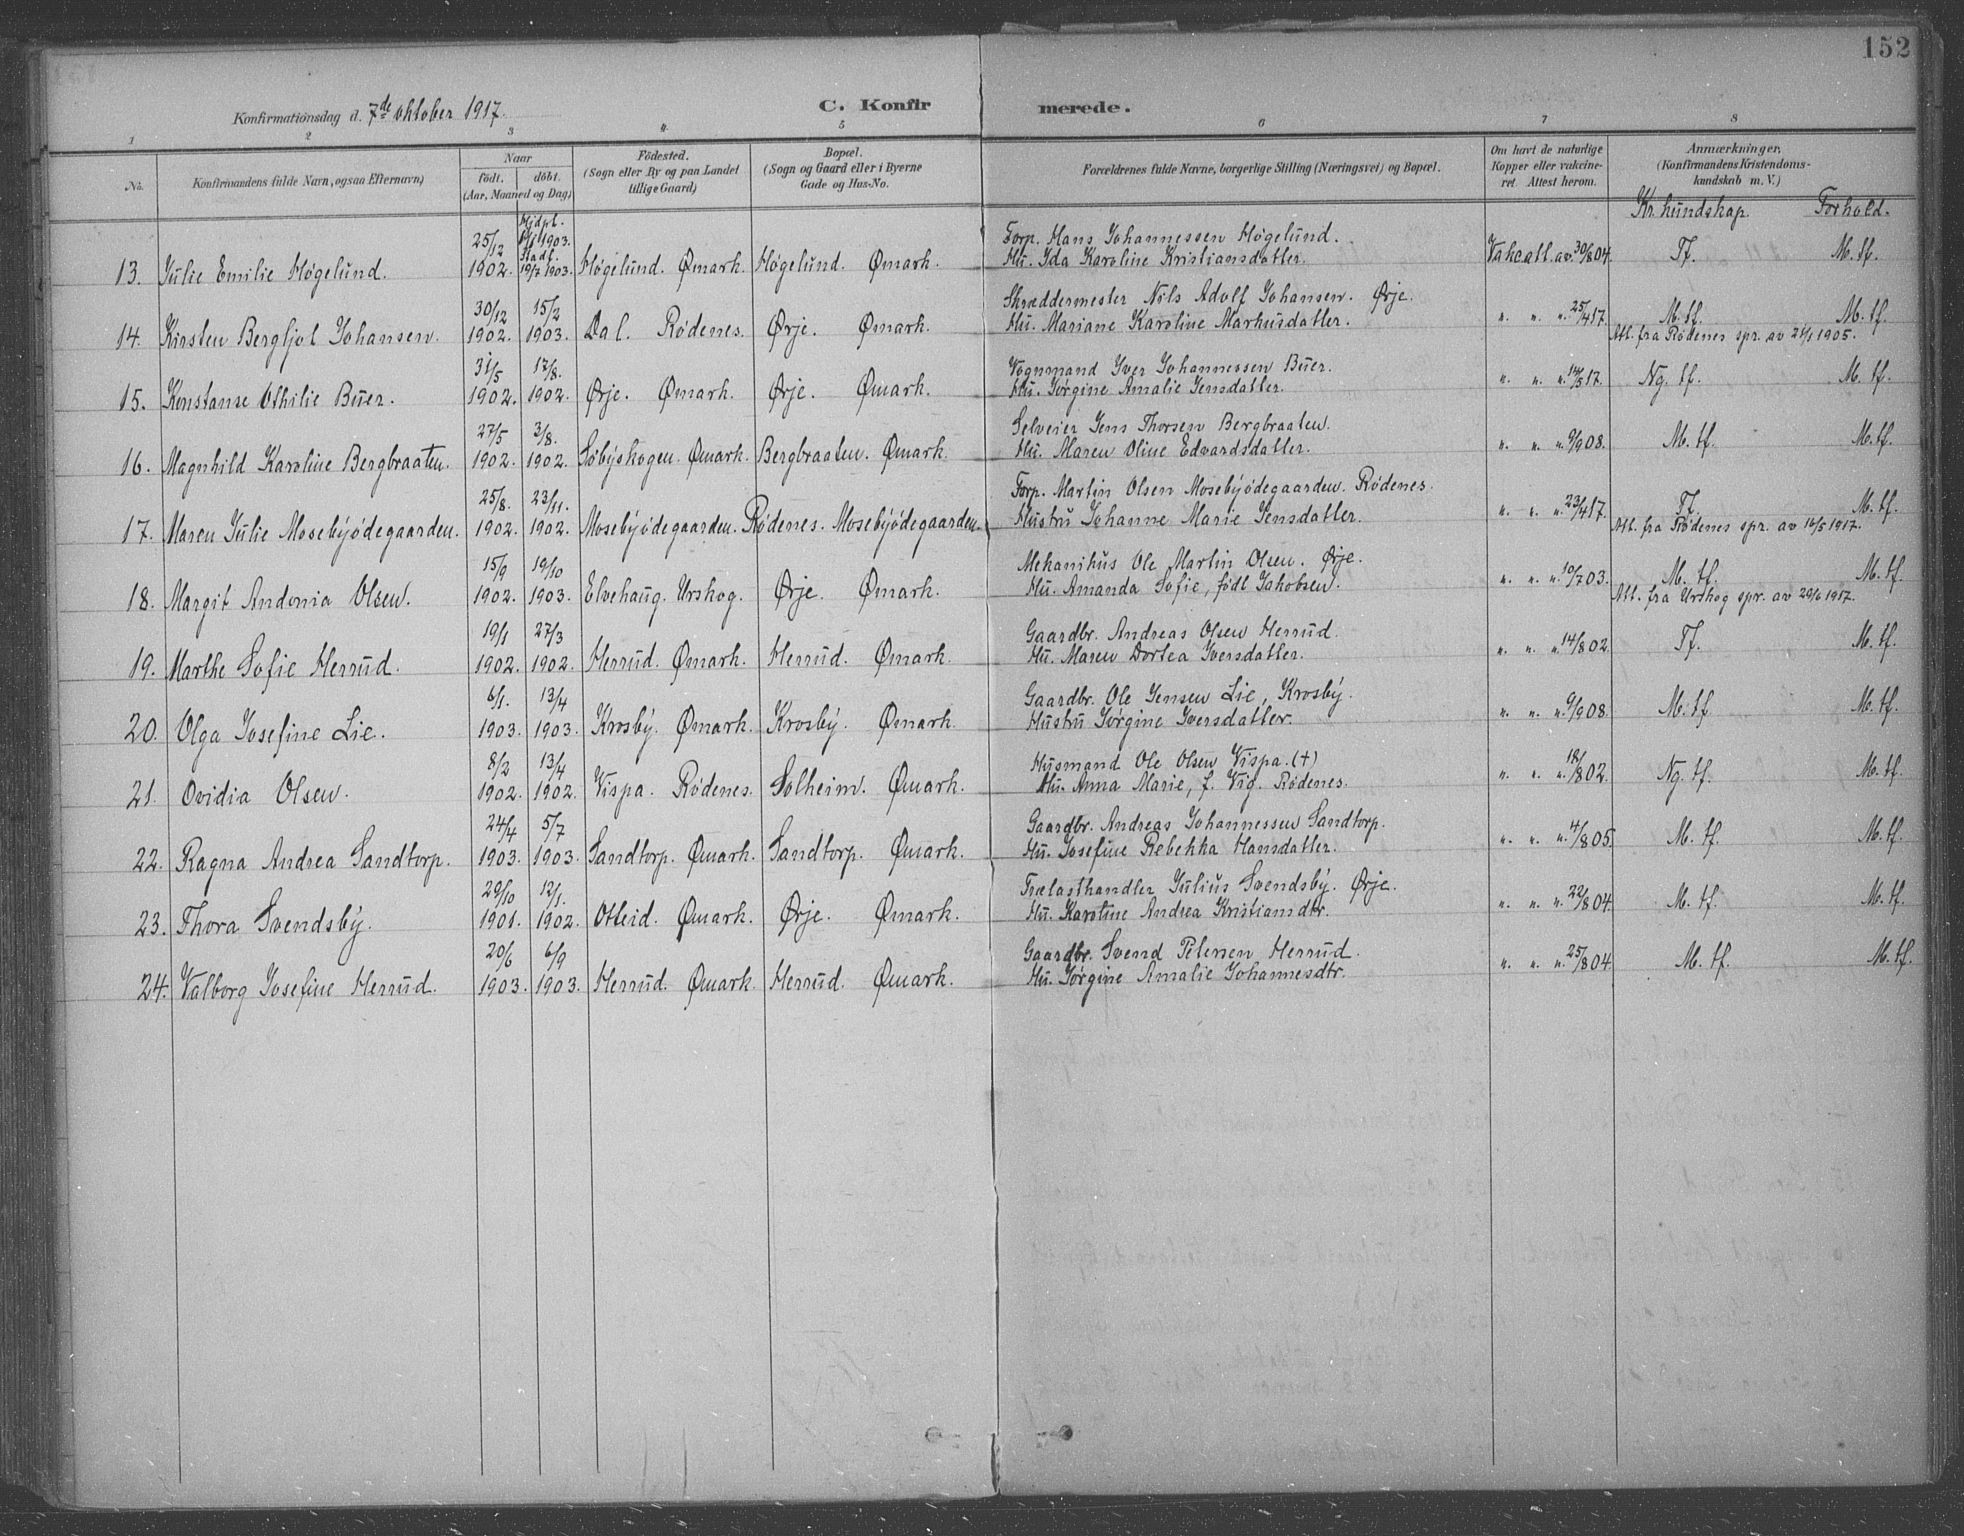 152
Konfirmationsdag d. 7de oktober 1917.
C. Konfirmerede.
1 2 3 4 5 6 7 8
No. Konfirmandens fulde Navn, ogsaa Efternavn) Naar födt. döbt. (Aar, Maaned og Dag) Födested. (Sogn eller By og paa Landet tillige Gaard) Bopæl. (Sogn og Gaard eller i Byerne Gade og Hus-No. Forældrenes fulde Navne, borgerlige Stilling (Næringsvei) og Bopæl. Om havt de naturlige Kopper eller vakcineret. Attest herom. Anmærkninger. (Konfirmandens Kristendomskundskab m. V.)
Kr. kundskap. Forhold.
Hjdpl.
25/12 1/1 1903. Forp. Hans Johannessen Høgelund.
Stadf.
13. Julie Emilie Høgelund. 1902. 19/7 1903. Høgelund. Ømark. Høgelund. Ømark. Hu. Ida Karoline Kristiansdatter. Vakc. att. av 30/8 04. Tf. M. tf.
30/12 15/2 Skræddermester Nils Adolf Johansen. Ørje.
14. Kirsten Bergljot Johansen. 1902. 1903. Dal. Rødenes. Ørje. Ømark. Hu. Mariane Karoline Markusdatter. " " " 25/4 17. M. tf. M. tf.
Att. fra Rødenes spr. av 1905.
31/5 17/8. Vognmand Iver Johannessen Buer.
15. Konstanse Othilie Buer. 1902. 1902. Ørje. Ømark. Ørje. Ømark. Hu. Jørgine Amalie Jensdatter. " " " 14/5 17. Ng. tf. M. tf.
27/5 3/8. Selveier Jens Thorsen Bergbraaten.
16. Magnhild Karoline Bergbraaten. 1902. 1902. Søbyskogen. Ømark. Bergbraaten. Ømark. Hu. Maren Oline Edvardsdatter. " " " 9/9 08. M. tf. M. tf.
25/8. 23/11. Forp. Martin Olsen Mosebyødegaarden. Rødenes.
17. Maren Julie Mosebyødegaarden. 1902. 1902. Mosebyødegaarden. Rødenes. Mosebyødegaarden. Hustru Johanne Marie Jensdatter. " " " 23/4 17. Tf. M. tf.
Att. fra Rødenes spr. av 16/5 1917.
15/9 19/10 Mekanikus Ole Martin Olsen. Ørje.
18. Margit Andonia Olsen. 1902. 1903. Elvehaug. Urskog. Ørje. Ømark. Hu. Amanda Sofie, født Jakobsen. " " " 10/7 03. M. tf. M. tf.
Att. fra Urskog spr. av 20/6 1917.
19/1 27/3 Gaardbr. Andreas Olsen Herrud.
19. Marthe Sofie Herrud. 1902. 1902. Herrud. Ømark. Herrud. Ømark. Hu. Maren Dortea Iversdatter. " " " 14/8 02. Tf. M. tf.
6/1. 13/4 Gaardbr. Ole Jensen Lie, Krosby.
20. Olga Josefine Lie. 1903. 1903. Krosby. Ømark. Krosby. Ømark. Hustru Jørgine Iversdatter. " " " 9/9 08. M. tf. M. tf.
8/2 13/4 Husmand Ole Olsen Vispa. (+)
21. Ovidia Olsen. 1902. 1902. Vispa. Rødenes. Solheim. Ømark. Hu. Anna Marie, f. Vig. Rødenes. " " " 18/8 02. Ng. tf. M. tf.
24/4 5/7 Gaardbr. Andreas Johannessen Sandtorp.
22. Ragna Andrea Sandtorp. 1903. 1903. Sandtorp. Ømark. Sandtorp. Ømark. Hu. Josefine Rebekka Hansdatter. " " " 4/8 05. M. tf. M. tf.
29/10 12/1. Trælasthandler Julius Svendsby. Ørje.
23. Thora Svendsby. 1901. 1902. Otteid. Ømark. Ørje. Ømark. Hu. Karoline Andrea Kristiansdtr. " " " 22/8 04. M. tf. M. tf.
20/6 6/9 Gaardbr. Svend Petersen Herrud.
24. Valborg Josefine Herrud. 1903. 1903. Herrud. Ømark. Herrud. Ømark. Hu. Jørgine Amalie Johannesdtr. " " " 25/8 04. M. tf. M. tf.